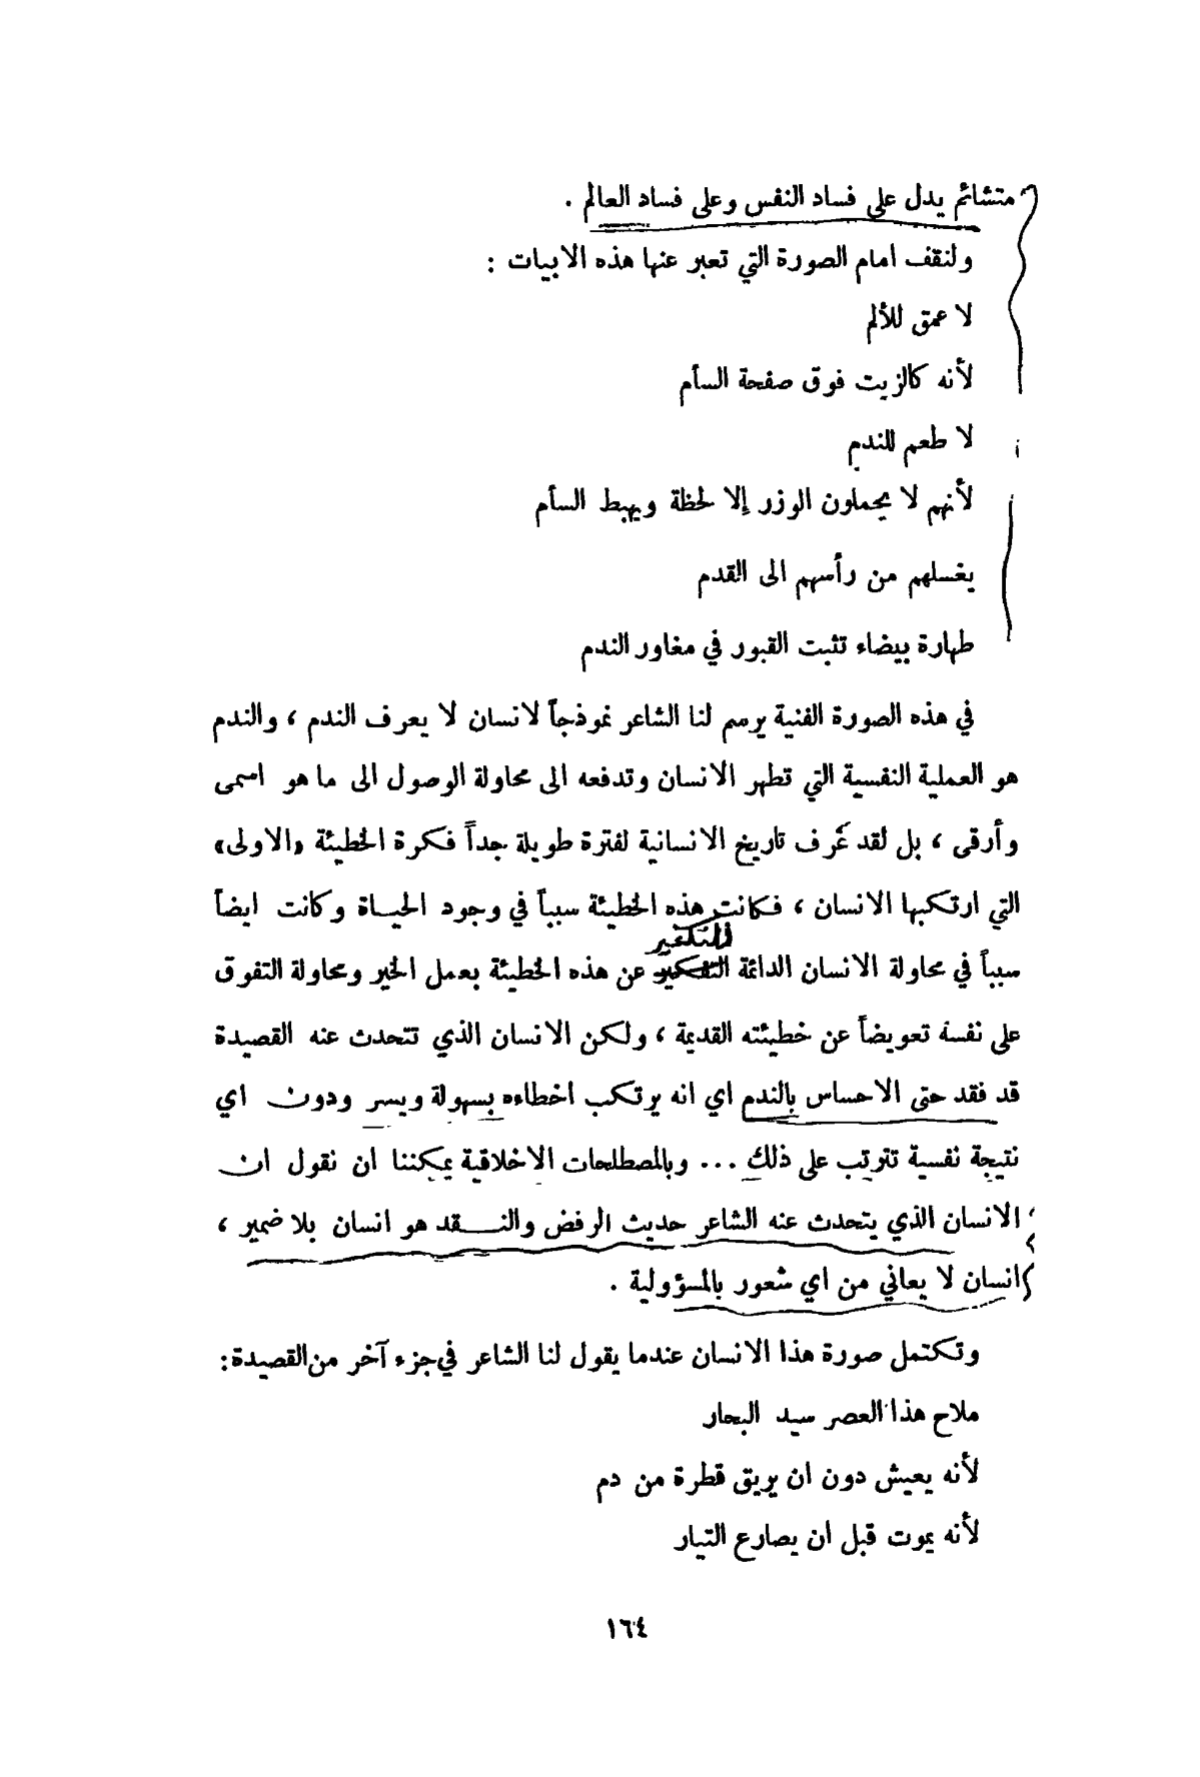 متشائم يدل على فساد النفس وعلى فساد العالم .
ولنقف امام الصورة التي تعبر عنها هذه الابيات :
لا عمق للألم
لأنه كالزيت فوق صفحة السأم
لا طعم للندم
لأنهم لا يحملون الوزر إلا لحظة ويهبط السأم
يغسلهم من رأسهم الى القدم
طهارة بيضاء تثبت القبور في مغاور الندم
في هذه الصورة الفنية يرسم لنا الشاعر نموذجاً لانسان لا يعرف الندم ، والندم
هو العملية النفسية التي تطهر الانسان وتدفعه الى محاولة الوصول الى ما هو اسمى
وأرقى ، بل لقد عَرف تاريخ الانسانية لفترة طويلة جداً فكرة الخطيئة «الاولى»
التي ارتكبها الانسان ، فكانت هذه الخطيئة سبباً في وجود الحياة وكانت ايضاً
للتكفير
سبباً في محاولة الانسان الدائمة التفكير عن هذه الخطيئة بعمل الخير ومحاولة التفوق
على نفسه تعويضاً عن خطيئته القديمة ، ولكن الانسان الذي تتحدث عنه القصيدة
قد فقد حتى الاحساس بالندم اي انه يرتكب اخطاءه بسهولة ويسر ودون اي
نتيجة نفسية تترتب على ذلك ... وبالمصطلحات الاخلاقية يمكننا ان نقول ان
الانسان الذي يتحدث عنه الشاعر حديث الرفض والنقد هو انسان بلا ضمير ،
انسان لا يعاني من اي شعور بالمسؤولية .
وتكتمل صورة هذا الانسان عندما يقول لنا الشاعر في جزء آخر من القصيدة :
ملاح هذا العصر سيد البحار
لأنه يعيش دون ان يريق قطرة من دم
لأنه يموت قبل ان يصارع التيار
١٦٤